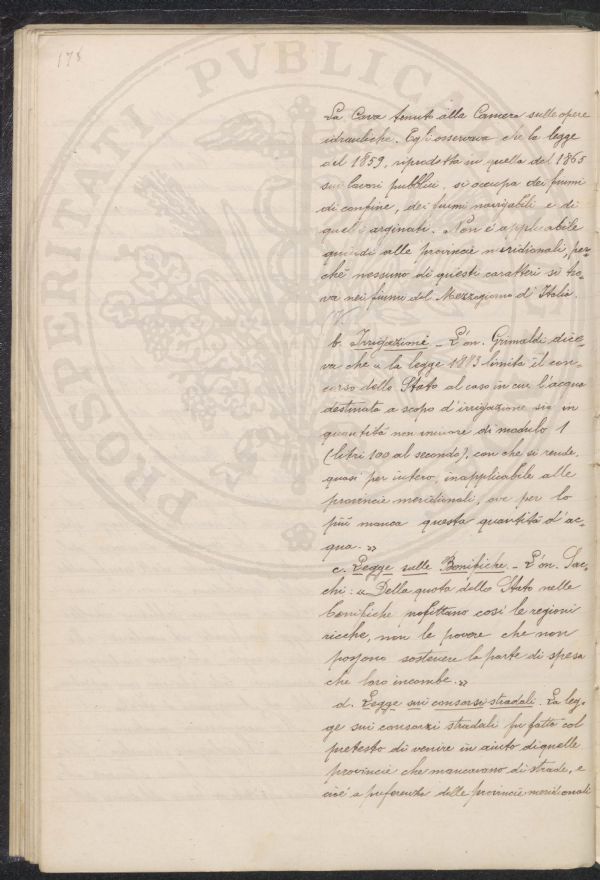 178
PROSPERITATI PUBLICAE
La Cava tenuto alla Camera sulle opere
idrauliche. Egli osservava che la legge
del 1859, riprodotta in quella del 1865
sui lavori pubblici, si occupa dei fiumi
di confine, dei fiumi navigabili e di
quelli arginati. Non è applicabile
quindi alle provincie meridionali, per-
chè nessuno di questi caratteri si tro-
va nei fiumi del Mezzogiorno d'Italia.
b. Irrigazioni - L'on. Grimaldi dice-
va che "la legge 1883 limita il con-
corso dello Stato al caso in cui l'acqua
destinata a scopo d'irrigazione sia in
quantità non minore di modulo 1
(litri 100 al secondo), con che si rende,
quasi per intero, inapplicabile alle
provincie meridionali, ove per lo
più manca questa quantità d'ac-
qua. »
c. Legge sulle Bonifiche. - L'on. Sac-
chi: « Della quota dello Stato nelle
bonifiche profittano così le regioni
ricche, non le povere che non
possono sostenere la parte di spesa
che loro incombe. »
d. Legge sui consorsi stradali. La leg-
ge sui consorzi stradali fu fatta col
pretesto di venire in aiuto di quelle
provincie che mancavano di strade, e
cioè a preferenza delle provincie meridionali